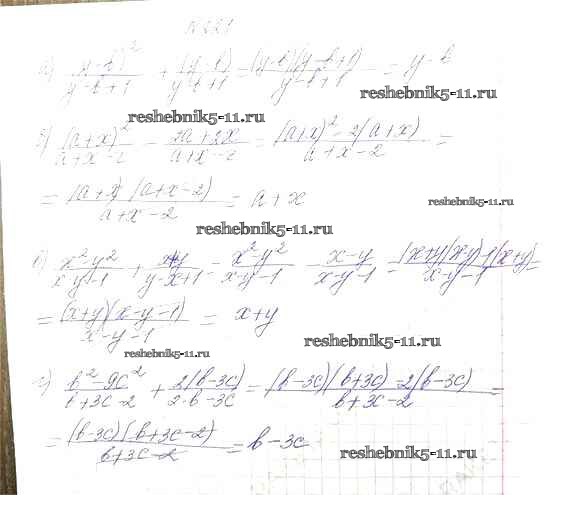 № 221
а) (y-b)²/(y-b+1) + (y-b)/(y-b+1) = (y-b)(y-b+1)/(y-b+1) = y-b
reshebnik5-11.ru
reshebnik5-11.ru
(a+x)²/(a+x-2) - (2a+2x)/(a+x-2) = ((a+x)²-2(a+x))/(a+x-2) =
= (a+x)(a+x-2)/(a+x-2) = a+x
reshebnik5-11.ru
reshebnik5-11.ru
(x²-y²)/(x-y-1) + (x+y)/(y-x+1) = (x²-y²)/(x-y-1) - (x-y)/(x-y-1) = ((x+y)(x-y)-1(x+y))/(x-y-1) =
= (x+y)(x-y-1)/(x-y-1) = x+y
reshebnik5-11.ru
reshebnik5-11.ru
г) (b²-9c²)/(b+3c-2) + 2(b-3c)/(2-b-3c) = ((b-3c)(b+3c)-2(b-3c))/(b+3c-2) =
= (b-3c)(b+3c-2)/(b+3c-2) = b-3c
reshebnik5-11.ru